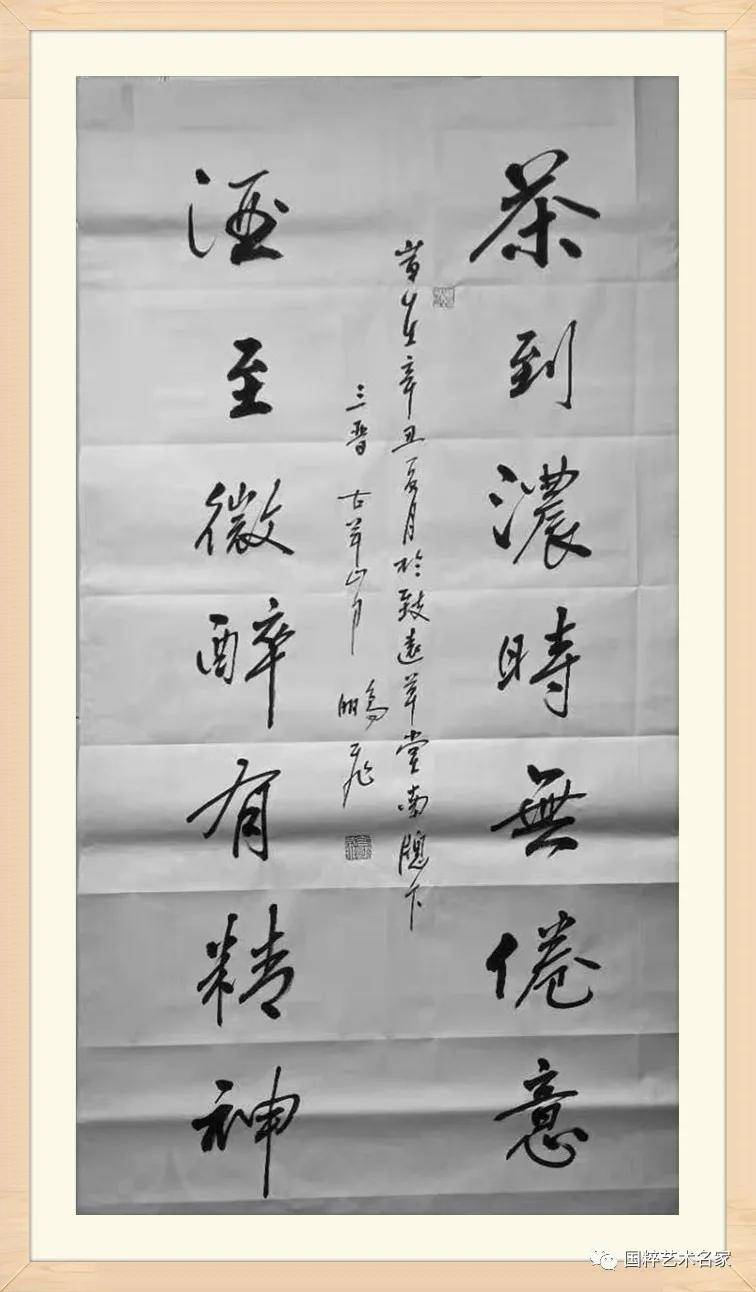 茶到濃時無倦意
歲在辛丑夏月於致遠草堂南牕下
三晉 古草山月 鵬飛
酒至微醉有精神
国粹艺术名家